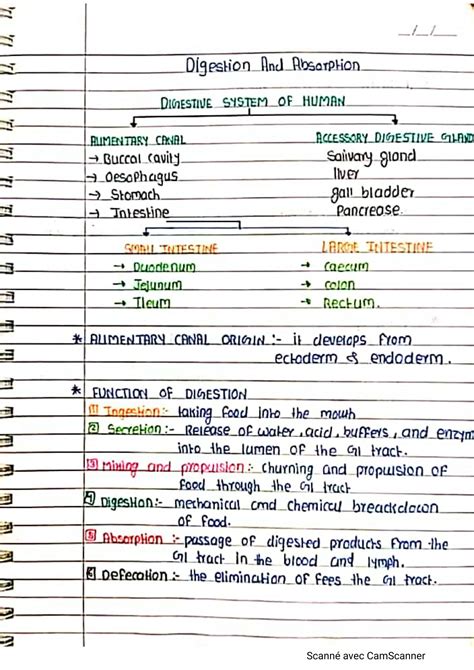 __/__/__
Digestion And Absorption
DIGESTIVE SYSTEM OF HUMAN
ALIMENTARY CANAL
→ Buccal cavity
→ Oesophagus
→ Stomach
→ Intestine
ACCESSORY DIGESTIVE GLAND
Salivary gland
liver
gall bladder
Pancrease.
SMALL INTESTINE
→ Duodenum
→ Jejunum
→ Ileum
LARGE INTESTINE
→ Caecum
→ colon
→ Rectum.
* ALIMENTARY CANAL ORIGIN :- it develops from
ectoderm & endoderm.
* FUNCTION OF DIGESTION
1 Ingestion :- taking food into the mouth
2 Secretion :- Release of water, acid, buffers, and enzym
into the lumen of the GI tract.
3 Mixing and propulsion :- churning and propulsion of
food through the GI tract
4 Digestion :- mechanical and chemical breackdown
of food.
5 Absorption :- passage of digested products from the
GI tract in the blood and lymph.
6 Defecation :- the elimination of fees the GI tract.
Scanné avec CamScanner